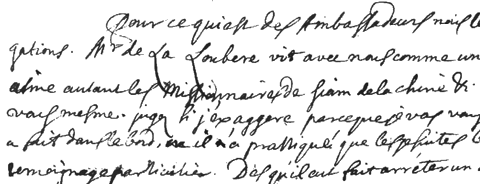 Pour ce qui est des Ambassadeurs nous le
gations. Mr de La Loubere vit avec nous comme un
aime autant les Missionnaires de Siam de la chine &
vous mesme. jugez si j'exaggere parce que je vas vous
a fait dans le bord, il n'a prattiqué que les Jesuites
temoignage particulier. Des qu'il eut fait arréter un